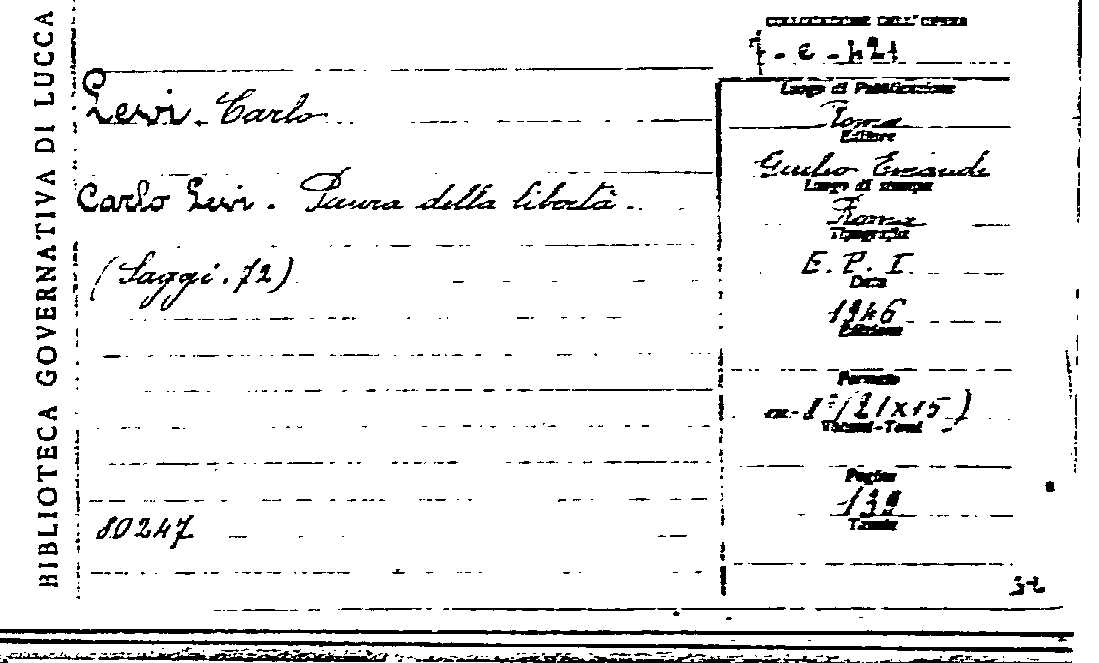 BIBLIOTECA GOVERNATIVA DI LUCCA
COLLOCAZIONE DELL'OPERA
Levi. Carlo
Carlo Levi. Paura della libertà.
(Saggi. 72)
80247
Luogo di Pubblicazione
Roma
Editore
Giulio Einaudi
Luogo di stampa
Roma
Tipografia
E. P. I.
Data
1946
Edizione
Formato
in-8°(21x15)
Volumi-Tomi
Pagine
139
Tavole